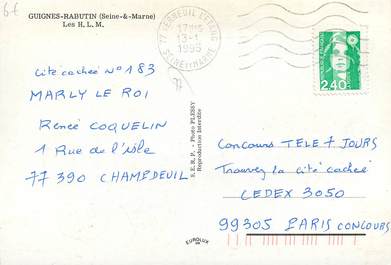 6F
GUIGNES-RABUTIN (Seine-&-Marne)
Les H. L. M.
77 VERNEUIL L'ETANG
17H15
13-1
1995
SEINE ET MARNE
2,40
Cité cachée N° 183
MARLY LE ROI
Renée COQUELIN
1 Rue de l'isle
77 390 CHAMPDEUIL
77
S. E. R. P. - Photo PLESSY
Reproduction Interdite
EUROLUX
Concours TELE 7 JOURS
Trouvez la cité cachée
CEDEX 3050
99305 PARIS CONCOURS